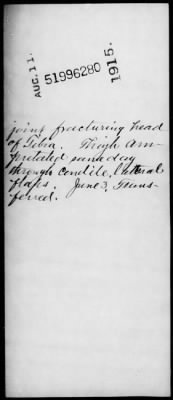 AUG. 11.
51996280
1915.
joint fracturing head
of Tibia. Thigh am-
putated same day
through condile, lateral
flaps. June 3, Trans-
ferred.